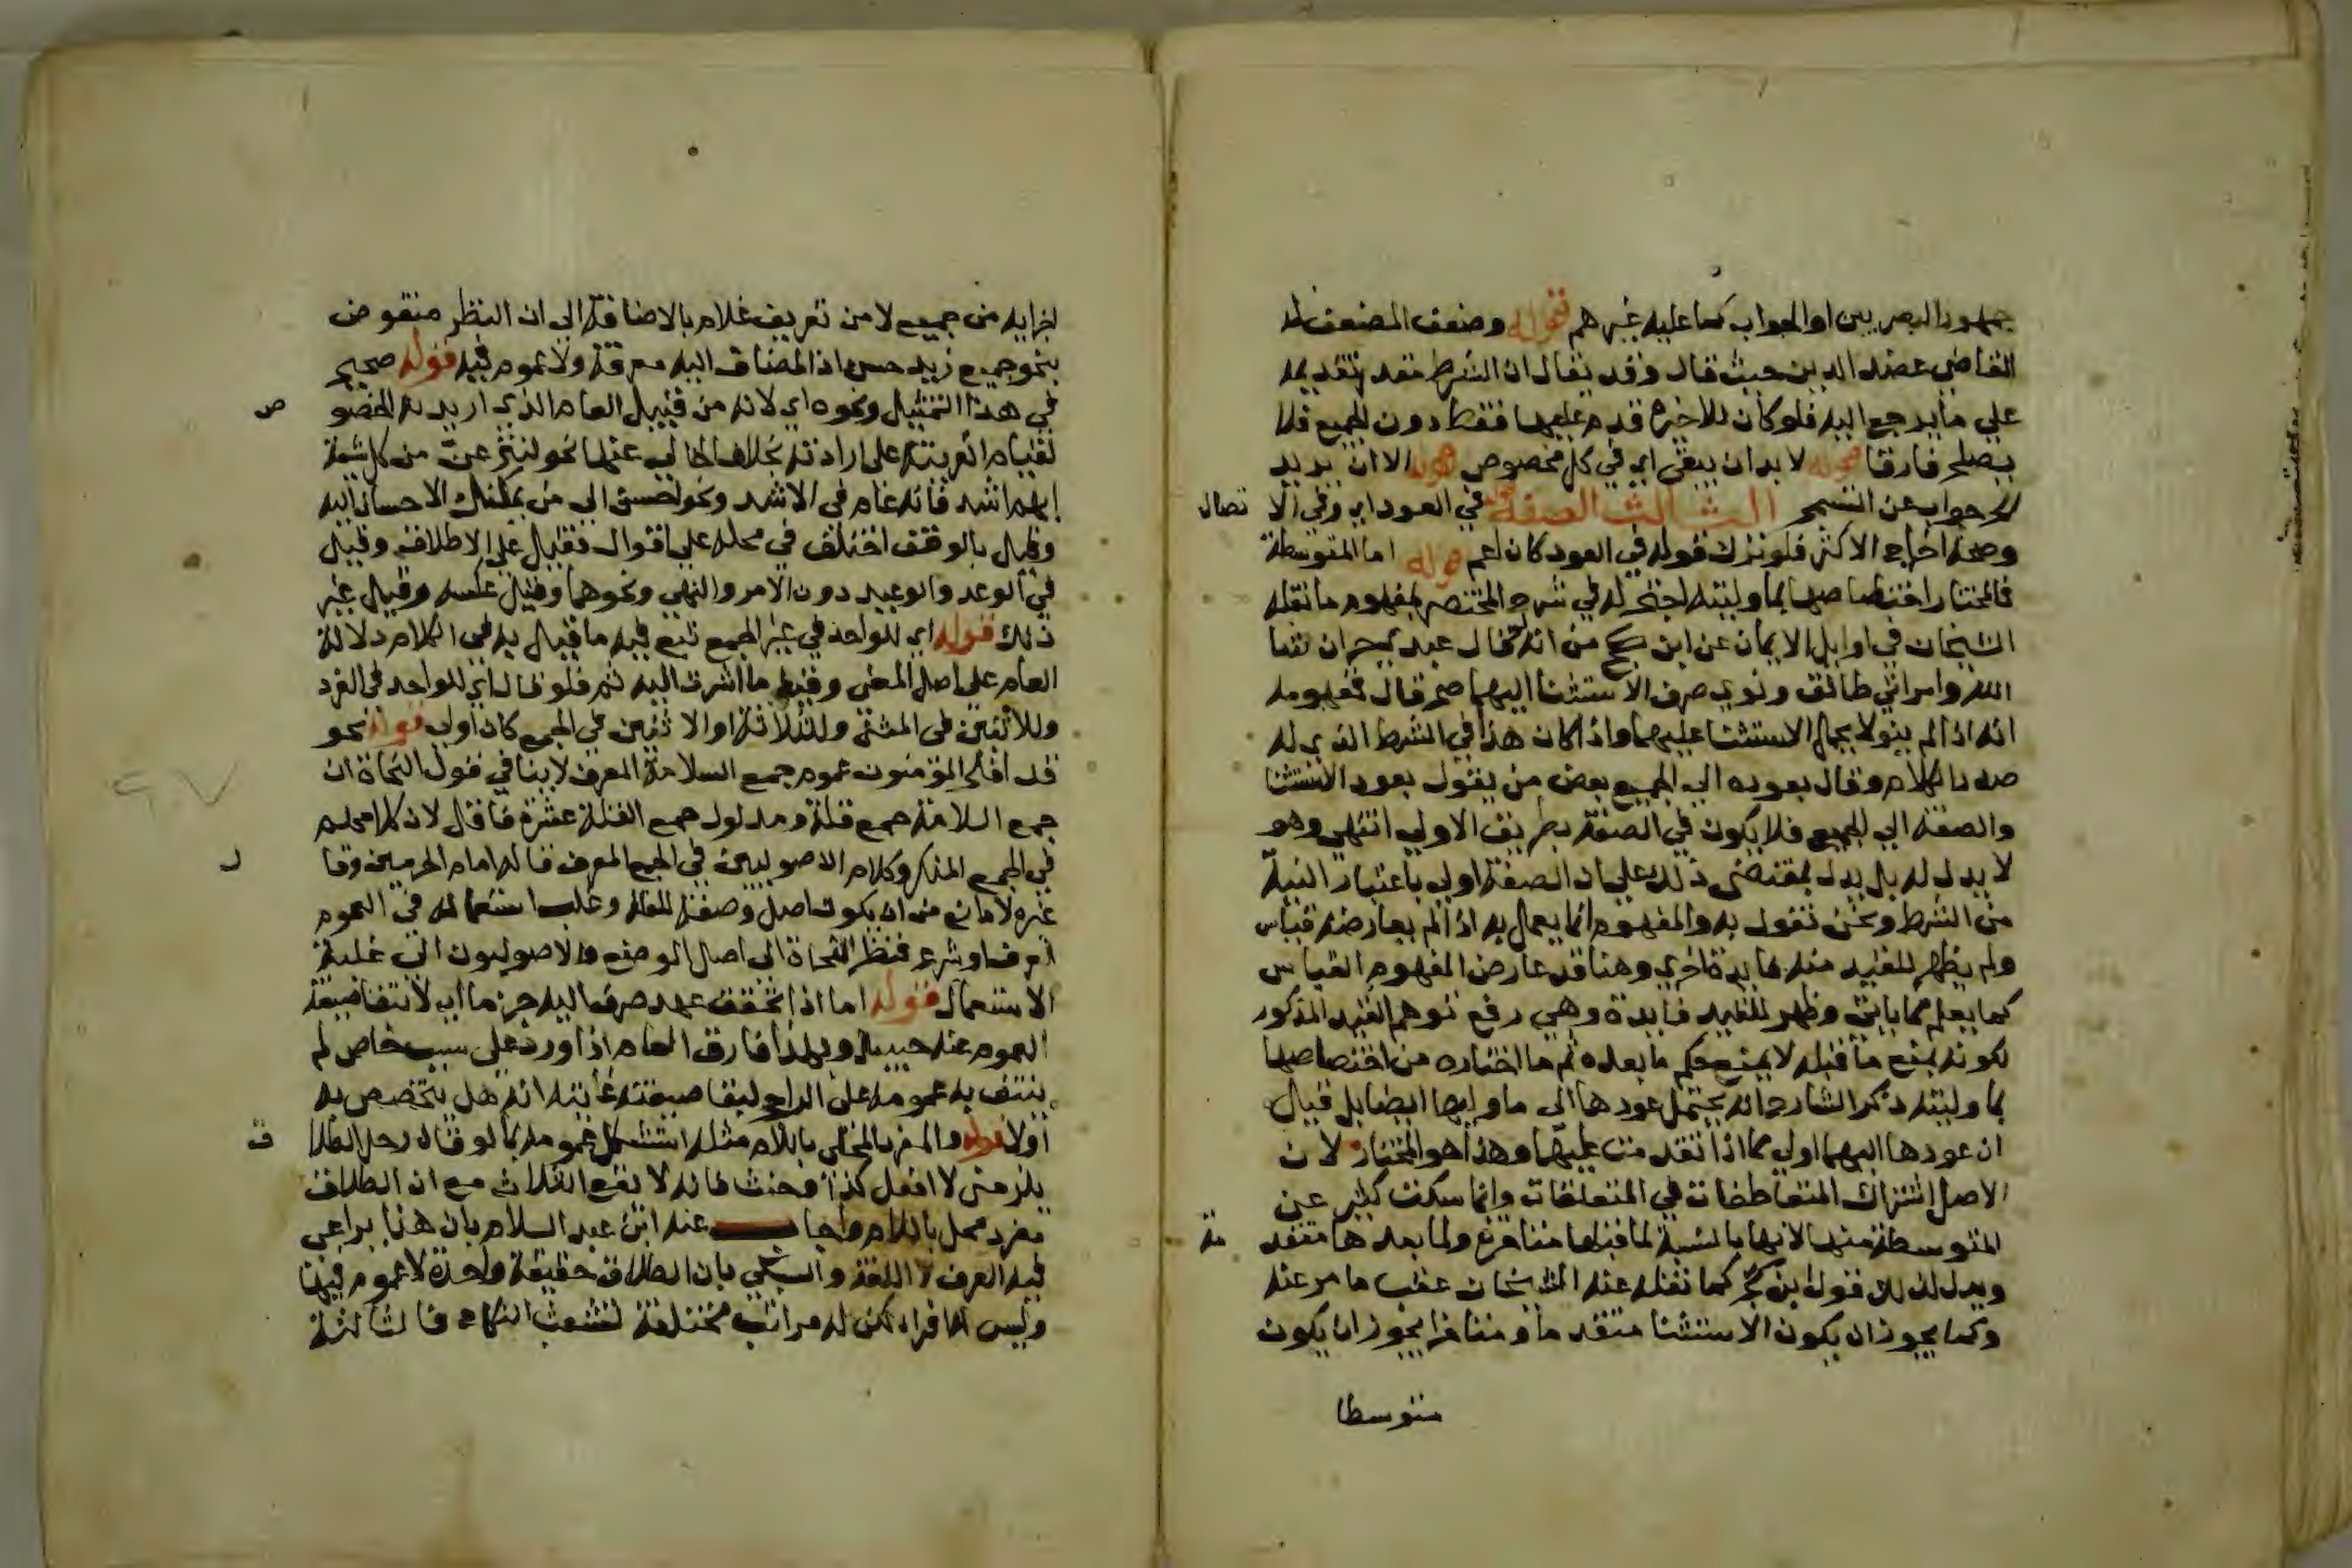 جمهور البصريين او الجواب كما عليه غيرهم قوله وضعف المصنف له
القاضي عضد الدين حيث قال وقد يقال ان الشرط مقدر تقديمه
علي ما يرجع اليه فلو كان للاخيرة قدم عليها فقط دون الجميع فلا
يصلح فارقا قوله لا بد ان يبقى اي في كل مخصوص قوله الا ان يريد
الجواب عن التسمح الثالث الصفة قوله في العود اي وفي الاتصال
وصحة اخراج الاكثر فلو ترك قوله في العود كان اعم قوله اما المتوسطة
فالمختار اختصاصها بما وليته احتج له في شرح المختصر بمفهوم ما نقله
الشيخان في اوايل الايمان عن ابن كج من انه لو قال عبدي حر ان شا
الله وامراتي طالق ونوي صرف الاستثنا اليهما صح قال فمفهومه
انه اذا لم ينو لا يحمل الاستثنا عليهما واذا كان هذا في الشرط الذي له
صدر الكلام وقال بعوده الي الجميع بعض من يقول بعود الاستثنا
والصفة الي الجميع فلا يكون في الصفة بطريق الاولي انتهي وهو
لا يدل له بل يدل بمقتضى ذلك علي ان الصفة اولي باعتبار النية
من الشرط ونحن نقول به والمفهوم انما يعمل به اذا لم يعارضه قياس
ولم يظهر للقيد منه فايدة اخري وهنا قد عارض المفهوم القياس
كما يعلم مما ياتي وظهر للقيد فايدة وهي رفع توهم القيد المذكور
لكونه يمنع ما قبله لا يمنع حكم ما بعده ثم ما اختاره من اختصاصها
بما وليته ذكر الشارح انه يحتمل عودها الى ما وليها ايضا بل قيل
ان عودها اليهما اولي مما اذا تقدمت عليهما وهذا هو المختار لان
الاصل اشتراك المتعاطفات في المتعلقات وانما سكت كثير عن
المتوسطة منها لانها بالنسبة لما قبلها متاخرة ولما بعدها متقدمة
ويدل لذلك قول ابن كج كما نقله عنه الشيخان عقب ما مر عنه
وكما يجوز ان يكون الاستثنا متقدما ومتاخرا يجوز ان يكون
متوسطا
اجزايه من جميع لا من تعريف غلام بالاضافة الي ان النظر منقوض
بنحو جميع زيد حسن اذ المضاف اليه معرفة ولا عموم فيه قوله صحيح
في هذا التمثيل ونحوه اي لانه من قبيل العام الذي اريد به الخصوص
لقيام القرينة على ارادته بخلاف الخالي عنها نحو لننزعن من كل شيعة
ايهم اشد فانه عام في الاشد ونحو احسن الى من يمكنك الاحسان اليه
وقيل بالوقف اختلف في محله علي اقوال فقيل علي الاطلاق وقيل
في الوعد والوعيد دون الامر والنهي ونحوهما وقيل عكسه وقيل غير
ذلك قوله اي للواحد في غير الجمع تبع فيه ما قيل به في الكلام دلالة
العام على اصل المعنى وفيه ما اشرت اليه ثم فلو قال اي للواحد في الفرد
وللاثنين في المثنى وللثلاثة او الاثنين في الجمع كان اولي قوله نحو
قد افلح المؤمنون عموم جمع السلامة المعرف لا ينافي قول النحاة ان
جمع السلامة جمع قلة ومدلول جمع القلة عشرة فاقل لان كلامهم
في الجمع المنكر وكلام الاصوليين في الجمع المعرف قاله امام الحرمين وقال
غيره لا مانع من ان يكون اصل وصفها للقلة وغلب استعماله في العموم
لعرف او شرع فنظر النحاة الى اصل الوضع والاصوليون الي غلبة
الاستعمال قوله اما اذا تحقق عهد صرف اليه جزما اي لانتفا صيغة
العموم عنه حينيذ وبهذا فارق العام اذا ورد على سبب خاص لم
ينتف به عمومه على الراجح لبقا صيغته غايته انه هل يتخصص به
اولا قوله والمفرد المحلى باللام مثله استشكل عمومه بما لو قال رجل الطلاق
يلزمني لا افعل كذا وحنث فانه لا يقع الثلاث مع ان الطلاق
مفرد محلى باللام واجاب عنه ابن عبد السلام بان هذا يراعى
فيه العرف لا اللغة والسبكي بان الطلاق حقيقة واحدة لا عموم فيها
وليس لها افراد لكن له مراتب مختلفة لتشعث النكاح فالثالثة